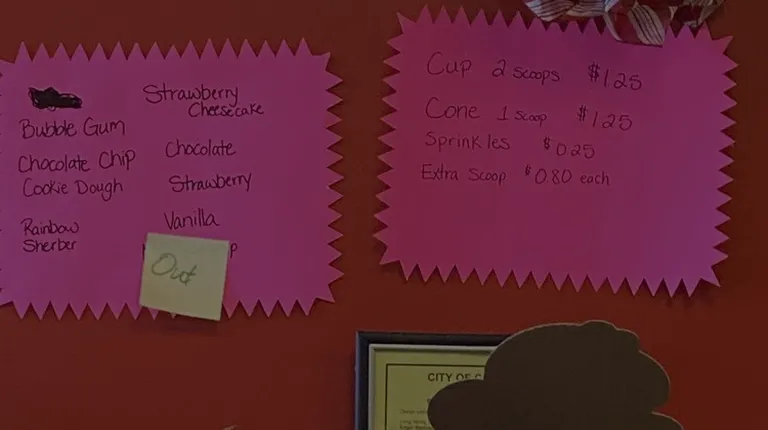 Bubble Gum
Chocolate Chip
Cookie Dough
Rainbow
Sherber
Strawberry
Cheesecake
Chocolate
Strawberry
Vanilla
Out
Cup 2 scoops $1.25
Cone 1 scoop $1.25
Sprinkles $0.25
Extra Scoop $0.80 each
CITY OF